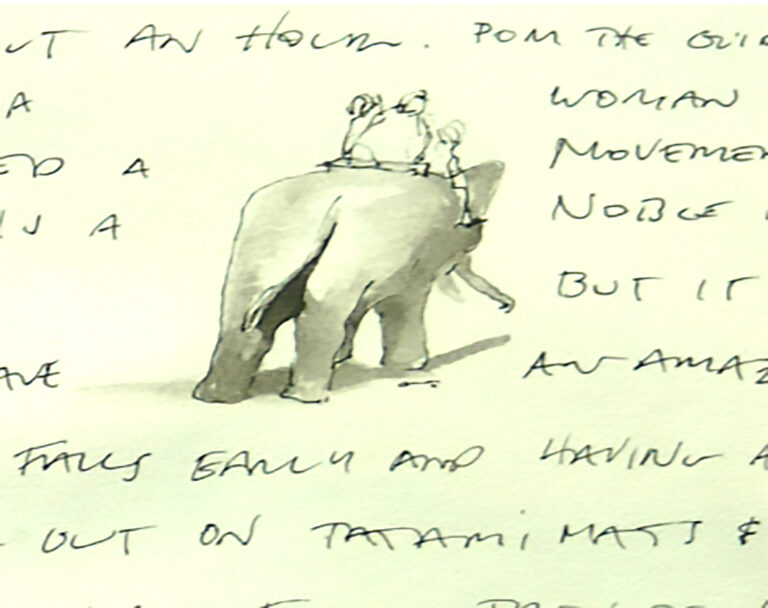 UT AN HOUR. POM THE GUI
A WOMAN
ED A MOVEMEN
IS A NOBLE
BUT IT
AVE AN AMAZ
FALLS EARLY AND HAVING A
OUT ON TATAMI MATS &